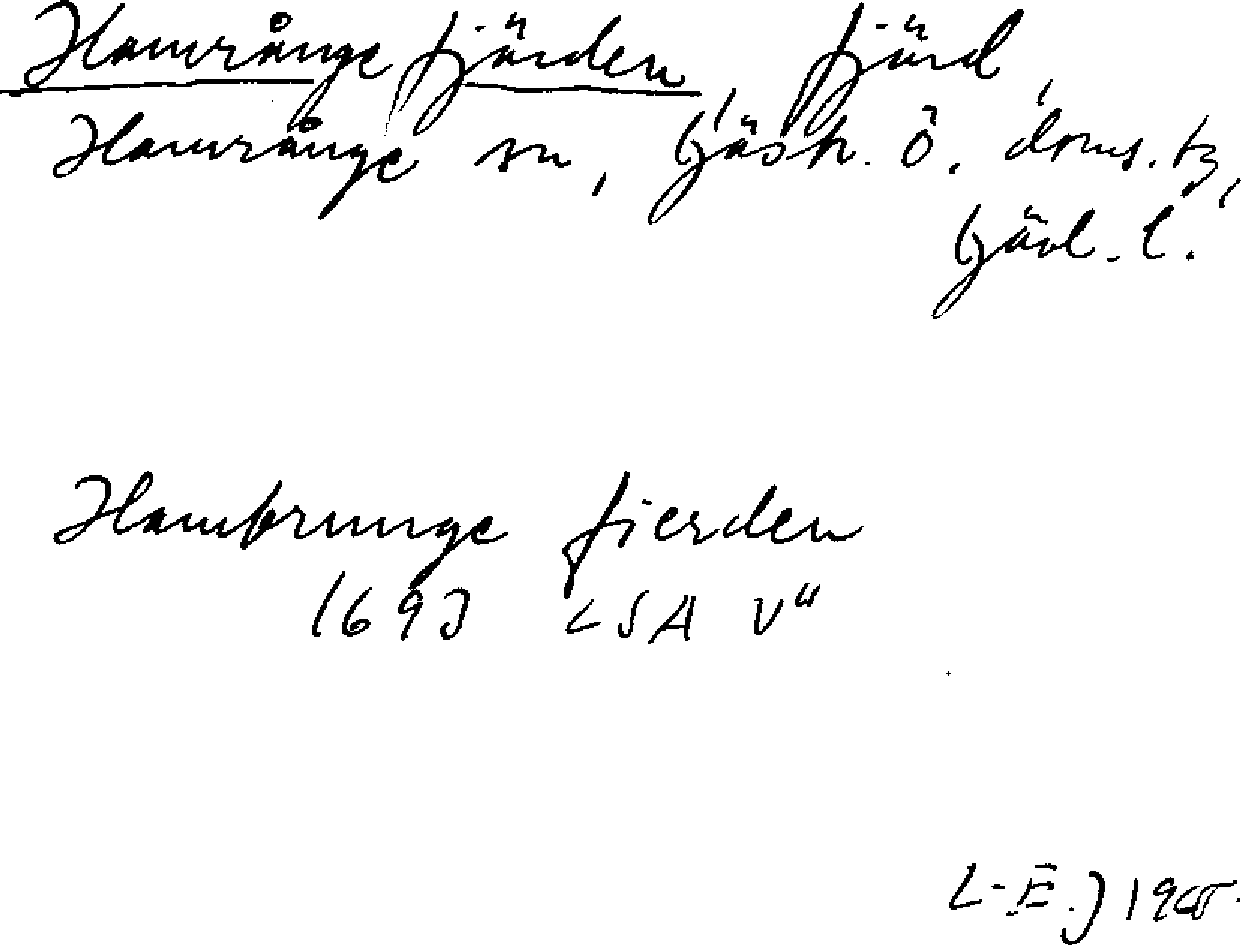 Hamrångefjärden fjärd,
Hamrånge sn, Gästr. Ö. doms. tg,
Gävl. l.
Hambrunge fierden
1693 LSA V"
L-E.J 19